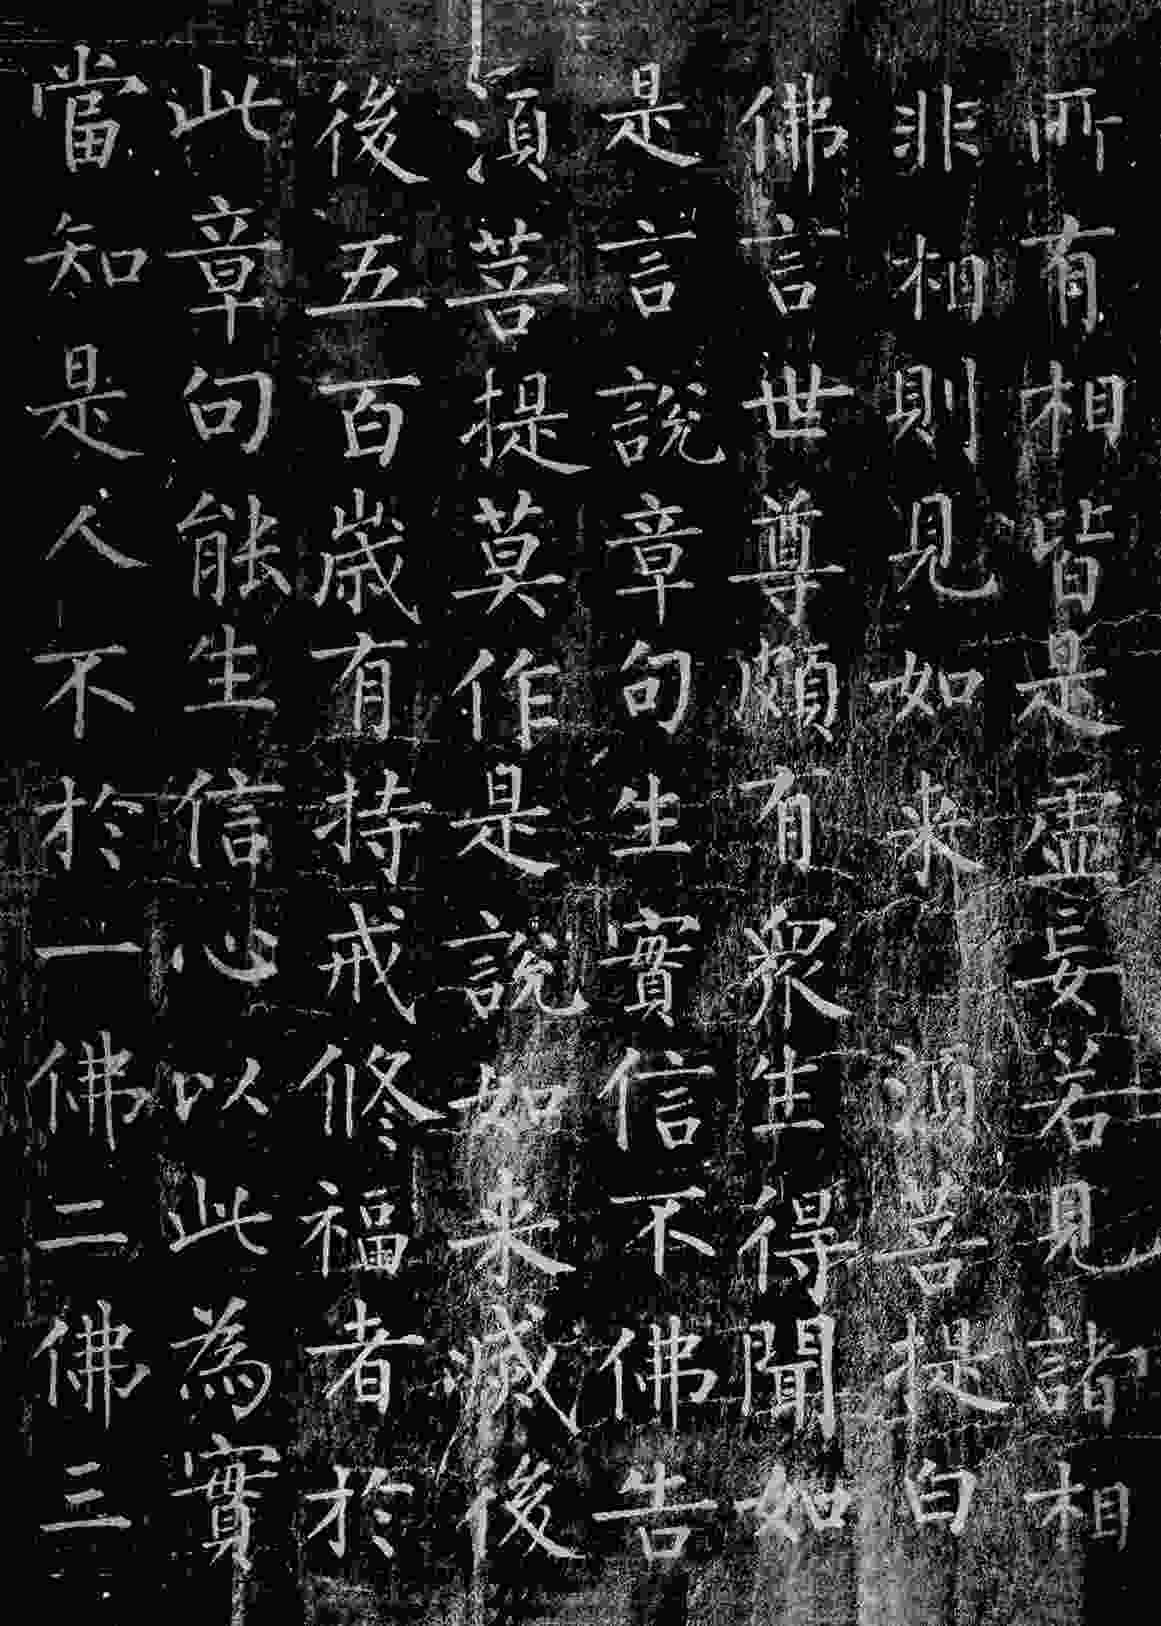 所有相皆是虛妄若見諸相
非相則見如来須菩提白
佛言世尊頗有衆生得聞如
是言說章句生實信不佛告
須菩提莫作是說如来滅後
後五百歲有持戒修福者於
此章句能生信心以此為實
當知是人不於一佛二佛三